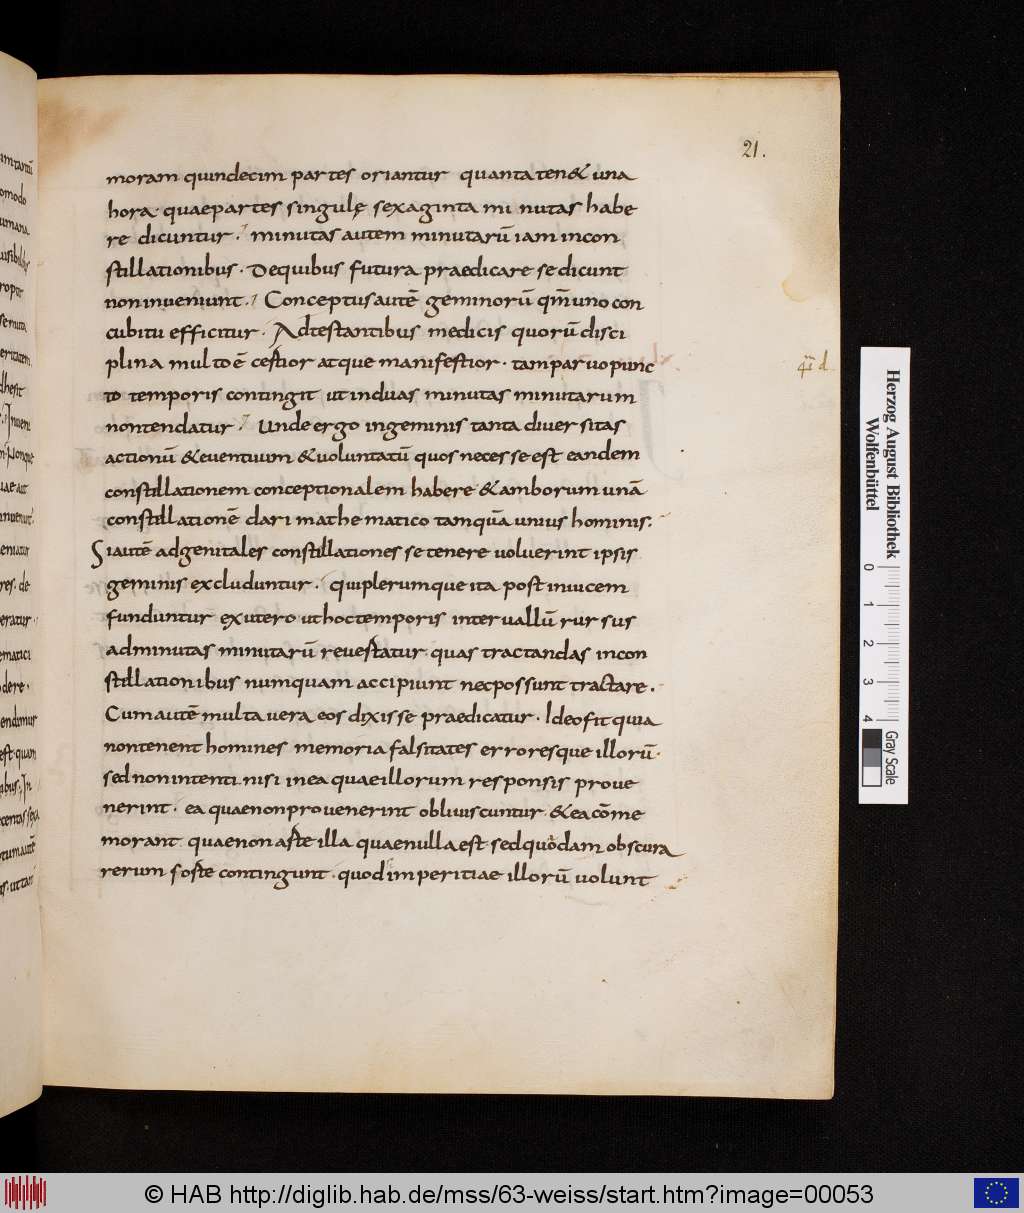 21.
moram quindecim partes oriantur quanta ten& una
hora. quaepartes singulę sexaginta mi nutas habe
re dicuntur. minutas autem minutarū iam incon
stillationibus. Dequibus futura praedicare se dicunt
non inueniunt. Conceptus autē geminorū qm̄ uno con
cubitu efficitur. Adtestantibus medicis quorū disci
plina multo ē cestior atque manifestior. tam paruo punc
to temporis contingit ut induas minutas minutarum
non tendatur. Unde ergo ingeminis tanta diuersitas
actionū & euentium & uoluntatū quos necesse est eandem
constillationem conceptionalem habere & amborum unā
constillationē dari mathematico tamquā unius hominis.
Si autē ad genitales constillationes se tenere uoluerint ipsis
geminis excluduntur. qui plerumque ita post inuicem
funduntur exutero ut hoc temporis interuallū rursus
ad minutas minutarū reuestatur. quas tractandas incon
stillationibus numquam accipiunt nec possunt tractare.
Cum autē multa uera eos dixisse praedicatur. Ideo fit quia
non tenent homines memoria falsitates erroresque illorū.
sed non intenti nisi in ea quae illorum responsis proue
nerint. ea quae non prouenerint obliuiscuntur. & ea cōme
morant quae non aste illa quae nulla est sed quodam obscura
rerum soste contingunt. quod imperitiae illorū uolunt
Herzog August Bibliothek
Wolfenbüttel
0 1 2 3 4
Gray Scale
© HAB http://diglib.hab.de/mss/63-weiss/start.htm?image=00053